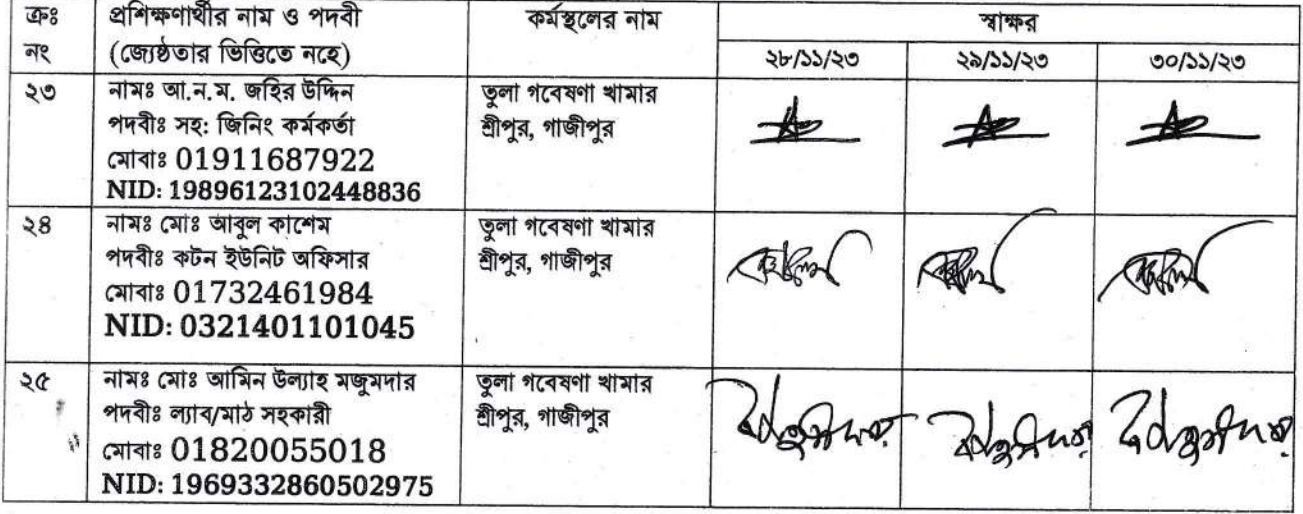 ক্রঃ নং
প্রশিক্ষণার্থীর নাম ও পদবী
(জ্যেষ্ঠতার ভিত্তিতে নহে)
কর্মস্থলের নাম
স্বাক্ষর
২৮/১১/২৩
২৯/১১/২৩
৩০/১১/২৩
২৩
নামঃ আ.ন.ম. জহির উদ্দিন
পদবীঃ সহ: জিনিং কর্মকর্তা
মোবাঃ 01911687922
NID: 19896123102448836
তুলা গবেষণা খামার
শ্রীপুর, গাজীপুর
২৪
নামঃ মোঃ আবুল কাশেম
পদবীঃ কটন ইউনিট অফিসার
মোবাঃ 01732461984
NID: 0321401101045
তুলা গবেষণা খামার
শ্রীপুর, গাজীপুর
২৫
নামঃ মোঃ আমিন উল্যাহ মজুমদার
পদবীঃ ল্যাব/মাঠ সহকারী
মোবাঃ 01820055018
NID: 1969332860502975
তুলা গবেষণা খামার
শ্রীপুর, গাজীপুর